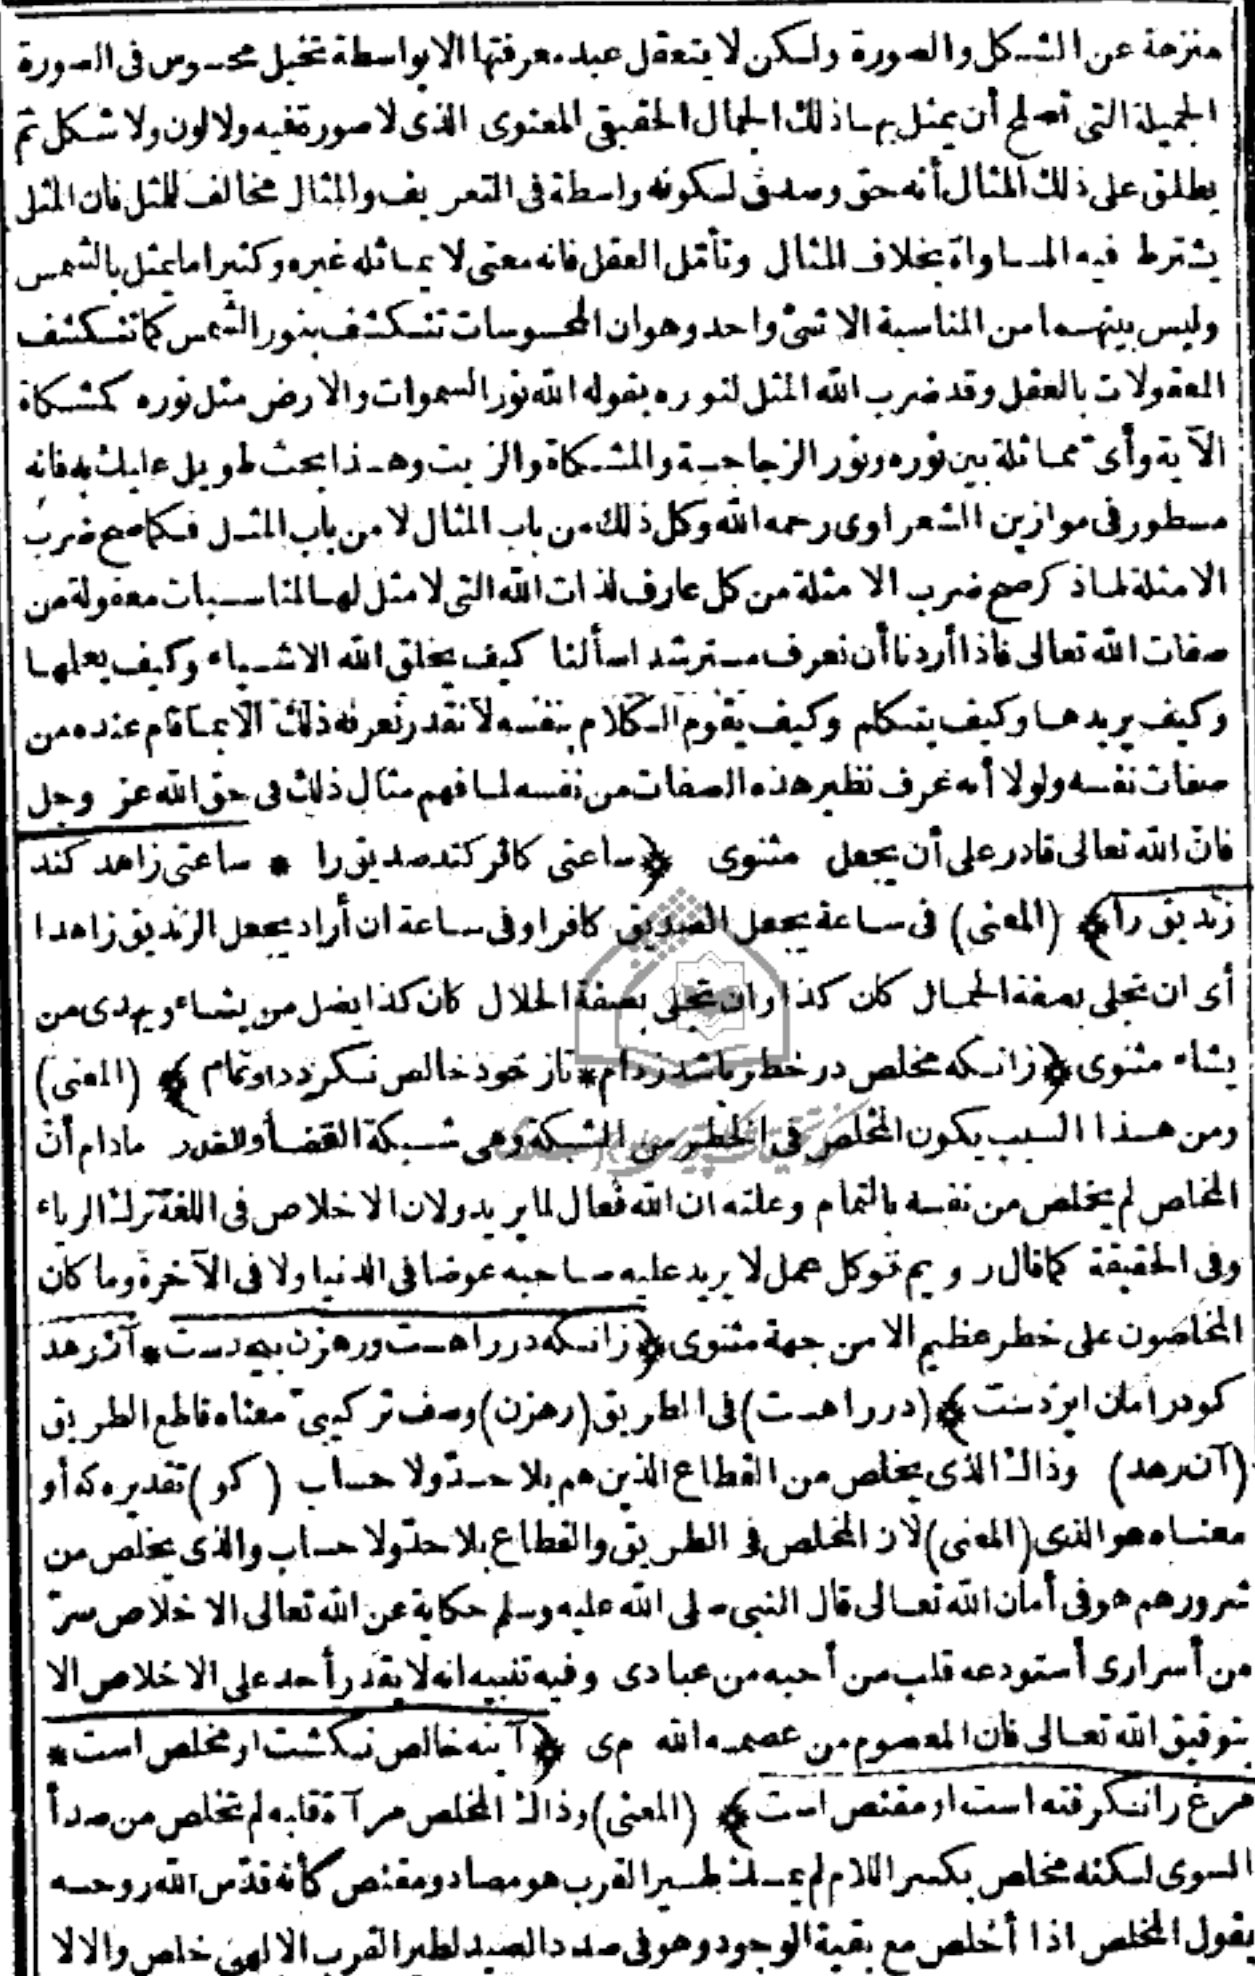 منزهة عن الشكل والصورة ولكن لا يتعقل عبد معرفتها الا بواسطة تخيل محسوس فى الصورة
الجميلة التى تصلح أن يمثل بها ذلك الجمال الحقيقى المعنوى الذى لا صورة فيه ولا لون ولا شكل ثم
يطلق على ذلك المثال أنه حق وصدق لكونه واسطة فى التعريف والمثال مخالف للمثل فان المثل
يشترط فيه المساواة بخلاف المثال وتأمل العقل فانه معنى لا يماثله غيره وكثيرا ما يمثل بالشمس
وليس بينهما من المناسبة الا شئ واحد وهو ان المحسوسات تنكشف بنور الشمس كما تنكشف
المعقولات بالعقل وقد ضرب الله المثل لنوره بقوله الله نور السموات والارض مثل نوره كمشكاة
الآية وأى مماثلة بين نوره ونور الزجاجة والمشكاة والزيت وهذا بحث طويل عليك به فانه
مسطور فى موازين الشعراوى رحمه الله وكل ذلك من باب المثال لا من باب المثل فكما صح ضرب
الامثلة لما ذكر صح ضرب الامثلة من كل عارف لذات الله التى لا مثل لها لمناسبات معقولة من
صفات الله تعالى فاذا أردنا أن نعرف مسترشدا سألنا كيف يخلق الله الاشياء وكيف يعلمها
وكيف يريدها وكيف يتكلم وكيف يقوم الكلام بنفسه لا نقدر نعرفه ذلك الا بما قام عنده من
صفات نفسه ولولا أنه عرف نظير هذه الصفات من نفسه لما فهم مثال ذلك فى حق الله عز وجل
فان الله تعالى قادر على أن يجعل مثنوى ﴿ساعتى كافر كند صديق را * ساعتى زاهد كند
زنديق را﴾ (المعنى) فى ساعة يجعل الصديق كافرا وفى ساعة ان أراد يجعل الزنديق زاهدا
أى ان تجلى بصفة الجمال كان كذا وان تجلى بصفة الجلال كان كذا يضل من يشاء ويهدى من
يشاء مثنوى ﴿زانكه مخلص در خطر باشد ز دام * تا ز خود خالص نكردد او تمام﴾ (المعنى)
ومن هذا السبب يكون المخلص فى الخطر من الشبكة وهى شبكة القضا والقدر مادام أن
المخلص لم يخلص من نفسه بالتمام وعلته ان الله فعال لما يريد ولان الاخلاص فى اللغة ترك الرياء
وفى الحقيقة كما قال رويم تو كل عمل لا يريد عليه صاحبه عوضا فى الدنيا ولا فى الآخرة وما كان
المخلصون على خطر عظيم الا من جهة مثنوى ﴿زانكه در راهست ورهزن بيحدست * آن رهد
كو در امان ايزدست﴾ (در راهست) فى الطريق (رهزن) وصف تركيبى معناه قاطع الطريق
(آن رهد) وذاك الذى يخلص من القطاع الذين هم بلا حد ولا حساب (كو) تقديره كه أو
معناه هو الذى (المعنى) لان المخلص فى الطريق والقطاع بلا حد ولا حساب والذى يخلص من
شرورهم هو فى أمان الله تعالى قال النبى صلى الله عليه وسلم حكاية عن الله تعالى الاخلاص سر
من أسرارى أستودعه قلب من أحبه من عبادى وفيه تنبيه انه لا يقدر أحد على الاخلاص الا
بتوفيق الله تعالى فان المعصوم من عصمه الله مى ﴿آينه خالص نكشت او مخلص است *
مرغ را نكرفته است او مقنص است﴾ (المعنى) وذاك المخلص مرآة قلبه لم تخلص من صدأ
السوى لكنه مخلص بكسر اللام لم يمسك طير القرب هو مصاد ومقنص كأنه قدس الله روحه
يقول المخلص اذا أخلص مع بقية الوجود وهو فى صدد الصيد لطير القرب الالهى خلص والا لا